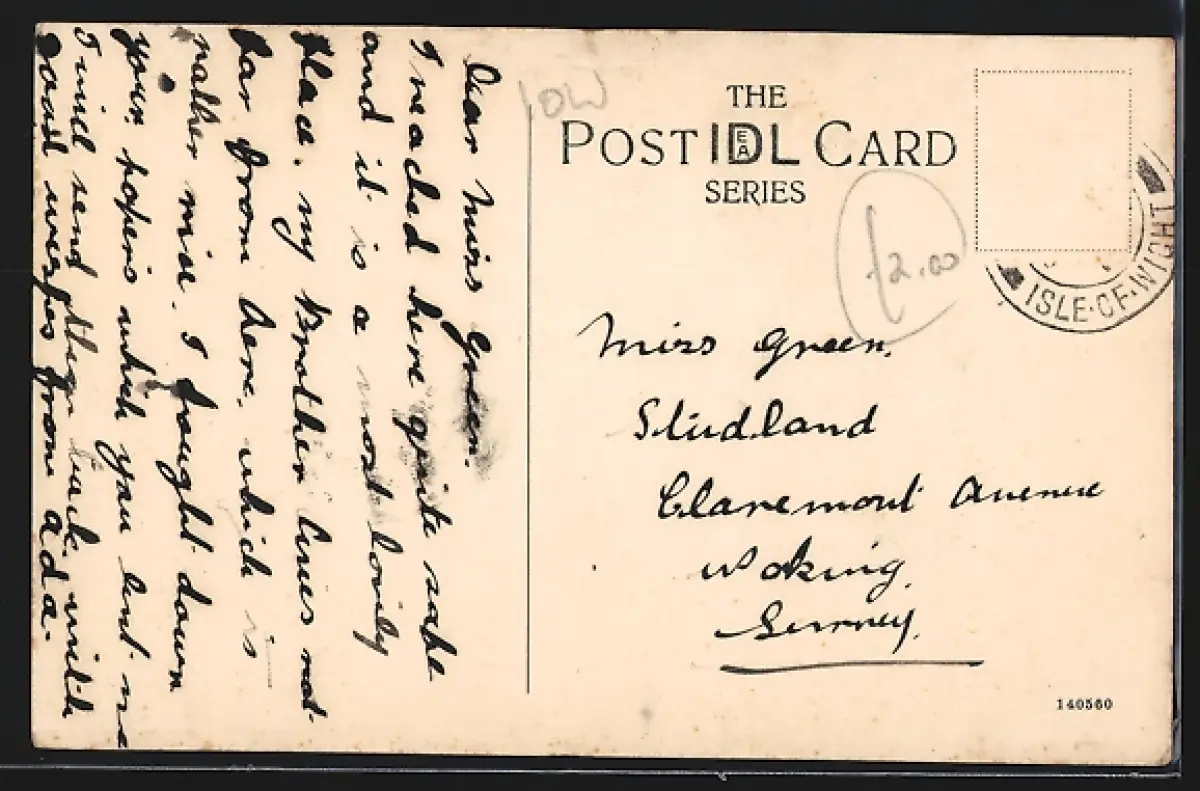 Dear Miss Green.
I reached here quite safe
and it is a most lovely
place. my Brother lives not
far from here. which is
rather nice. I bought down
your papers which you lent me
I will send them back with
good wishes from Ada.
IOW
THE
POST IDEAL CARD
SERIES
£2.00
ISLE·OF·WIGHT
Miss Green.
Studland
Claremont Avenue
Woking,
Surrey.
140560